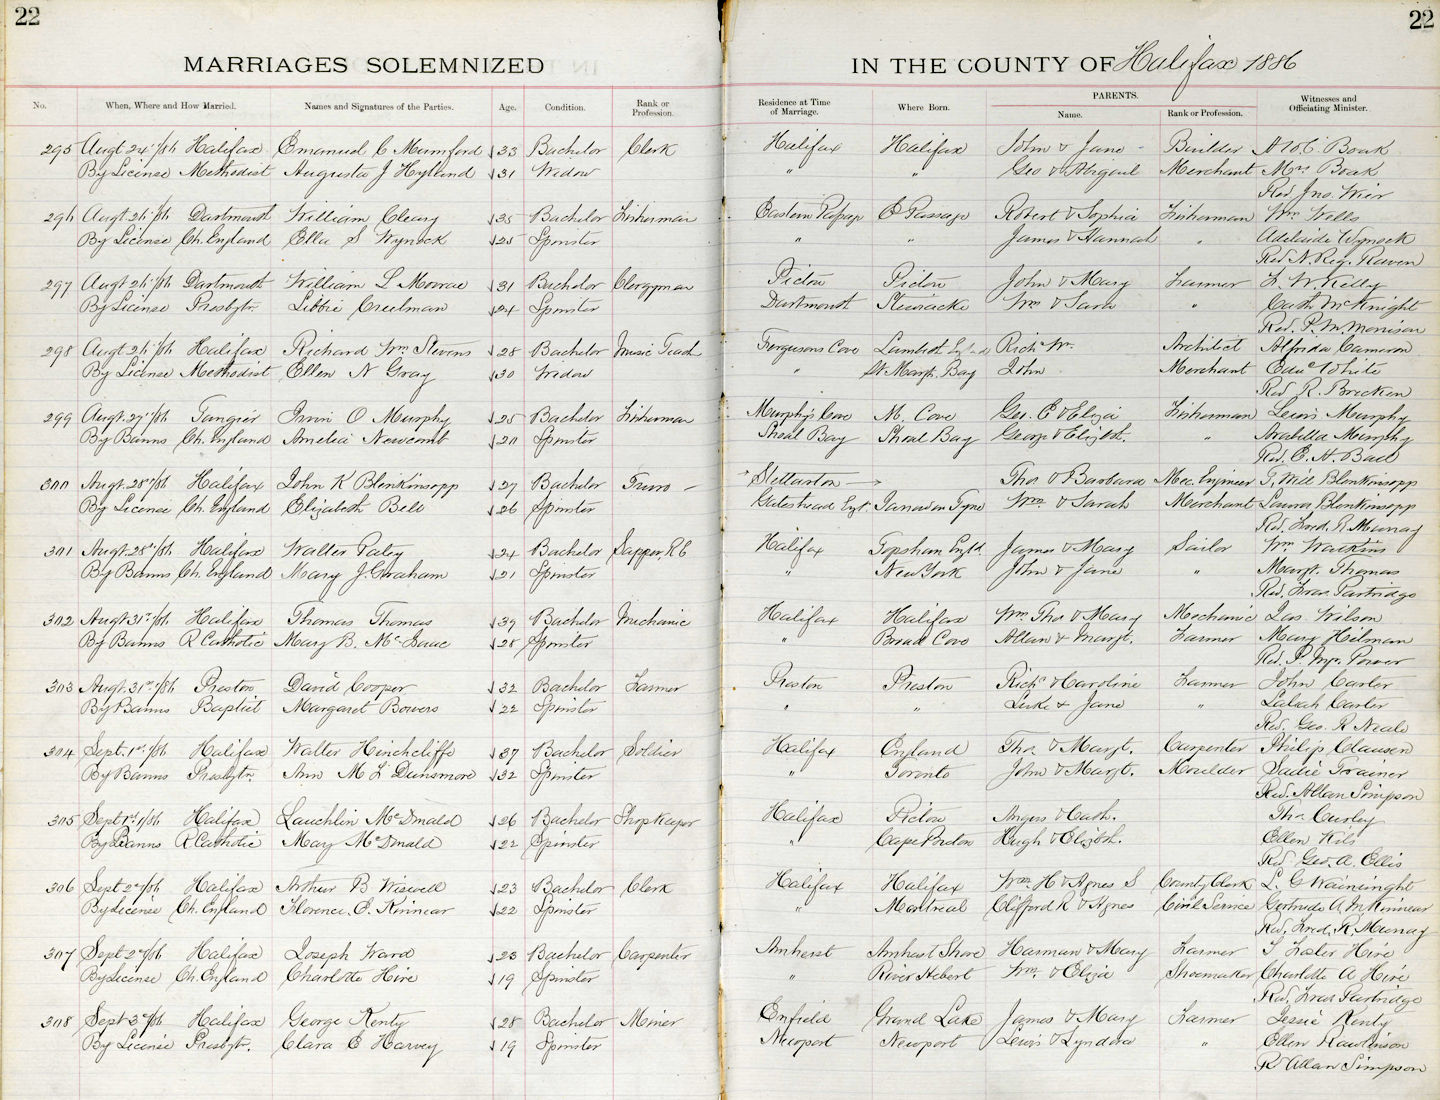 22
22
MARRIAGES SOLEMNIZED
IN THE COUNTY OF Halifax 1886
No. When, Where and How Married. Names and Signatures of the Parties. Age. Condition. Rank or Profession. Residence at Time of Marriage. Where Born. PARENTS. Name. Rank or Profession. Witnesses and Officiating Minister.
295 Augt 24th/86 Halifax Emanuel C Mumford 33 Bachelor Clerk Halifax Halifax John & Jane - Builder Boak
By License Methodist Augusta J Hyland 31 Widow " " Geo & Abigail Merchant Mrs Boak
Rev Jno. Wier
296 Augt 26th/86 Dartmouth William Cleary 35 Bachelor Fisherman Eastern Passage E Passage Robert & Sophia Fisherman Wm Wells
By License Ch. England Ella S Wynock 25 Spinster " " James & Hannah " Adelaide Wynock
Rev N. Reg. Raven
297 Augt 26th/86 Dartmouth William L Monroe 31 Bachelor Clergyman Pictou Pictou John & Mary Farmer F. W. Kelly
By License Presbytr. Libbie Creelman 24 Spinster Dartmouth Stewiacke Wm & Sarah " Cath McKnight
Rev. P. M Morrison
298 Augt 26th/86 Halifax Richard Wm Stevens 28 Bachelor Music Teach Fergusons Cove Lambeth Engd Richd Wm. Architect Alfrida Cameron
By License Methodist Ellen N Gray 30 Widow " St Margt. Bay John Merchant Edwd White
Rev R. Brecken
299 Augt 27th/86 Tangier Irwin O Murphy 25 Bachelor Fisherman Murphy's Cove M. Cove Geo. E & Eliza Fisherman Lewis Murphy
By Banns Ch. England Amelia Newcomb 20 Spinster Shoal Bay Shoal Bay George & Elizth. " Arabella Murphy
Rev. E. H. Ball
300 Augt. 28th/86 Halifax John K Blenkinsopp 27 Bachelor Truro - Stellarton Thos & Barbara Mec. Engineer T. Will Blenkinsopp
By License Ch. England Elizabeth Bell 26 Spinster Gateshead Engt. on Tyne Wm. & Sarah Merchant Laura Blenkinsopp
Rev. Fred. R. Murray
301 Augt. 28th/86 Halifax Walter Paley 24 Bachelor Sapper RE Halifax Topsham Engld James & Mary Sailor Wm Watkins
By Banns Ch. England Mary J. Graham 21 Spinster " New York John & Jane " Margt. Thomas
Rev. Fras Partridge
302 Augt 31st/86 Halifax Thomas Thomas 39 Bachelor Mechanic Halifax Halifax Wm. Thos & Mary Mechanic Jas. Wilson
By Banns R Catholic Mary B. McIsaac 28 Spinster " Broad Cove Allan & Margt. Farmer Mary Hilman
Rev. P. Power
303 Augt. 31st/86 Preston David Cooper 32 Bachelor Farmer Preston Preston Richd & Caroline Farmer John Carter
By Banns Baptist Margaret Bowers 22 Spinster " " Luke & Jane " Carter
Rev. Geo. R Neale
304 Sept. 1st/86 Halifax Walter Hinchcliffe 37 Bachelor Soldier Halifax England Thos. & Margt. Carpenter Philip Clausen
By Banns Presbytn. Ann M. L Dunsmore 32 Spinster " Toronto John & Margt. Moulder Sadie Trainer
Rev. Allan Simpson
305 Sept 1st/86 Halifax Lauchlin McDonald 26 Bachelor Shopkeeper Halifax Pictou Angus & Cath. Thos Curley
By Banns R Catholic Mary McDonald 22 Spinster " Cape Breton Hugh & Elizth. Ellen
Rev Geo. A. Ellis
306 Sept 2nd/86 Halifax Arthur B Wiswell 23 Bachelor Clerk Halifax Halifax Wm. H & Agnes S County Clerk L. G Wainwright
By License Ch. England Florence. E. Kinnear 22 Spinster " Montreal Clifford R & Agnes Civil Service Gertrude A McKinnear
Rev. Fred. R. Murray
307 Sept 2nd/86 Halifax Joseph Ward 23 Bachelor Carpenter Amherst Amherst Shore Harman & Mary Farmer Foster Hire
By License Ch. England Charlotte Hire 19 Spinster " River Hebert Wm. & Eliza Shoemaker Charlotte A Hire
Rev. Fras Partridge
308 Sept 3rd/86 Halifax George Kenty 28 Bachelor Miner Enfield Grand Lake James & Mary Farmer Jessie Kenty
By License Presbytr. Clara E Harvey 19 Spinster Newport Newport Lewis & Lyndora " Ellen Rawlinson
Rv Allan Simpson